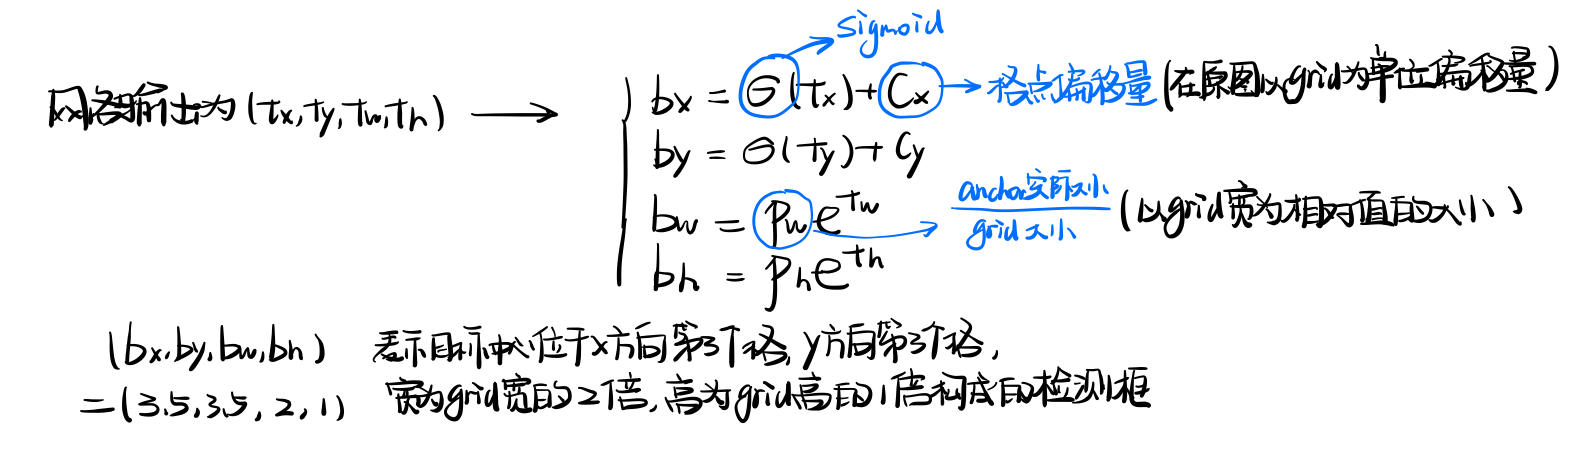 sigmoid
网络输出为(tx,ty,tw,th) → bx = σ(tx)+Cx → 格点偏移量(在原图以grid为单位偏移量)
by = σ(ty)+Cy
bw = pwe^tw → anchor实际大小/grid大小 (以grid宽为相对值的大小)
bh = phe^th
(bx,by,bw,bh) 表示目标中心位于x方向第3个格,y方向第3个格,
=(3.5,3.5,2,1) 宽为grid宽的2倍,高为grid高的1倍构成的检测框